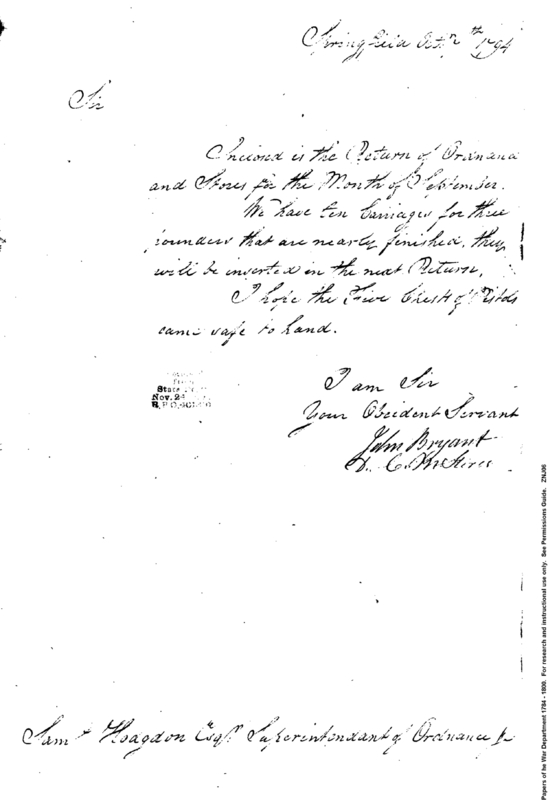 Springfield Octr 7th 1794
Sir
Inclosed is the Return of Ordnance
and Stores for the Month of September.
We have ten Carriages for three
pounders that are nearly finished, they
will be inserted in the next Return,
I hope the Five Chests of Pistols
came safe to hand.
I am Sir
Your Obedient Servant
John Bryant
State
Nov. 24
Saml Hoagdon Esqr Superintendant of Ordnance &c
Papers of he War Department 1784 - 1800. For research and instructional use only. See Permissions Guide. ZNJ06